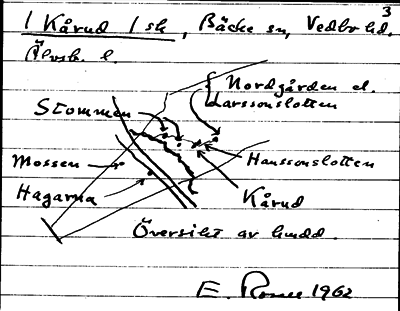 3
1 Kårud 1 sk, Bäcke sn, Vedbo hd.
Älvsb. l.
Nordgården el.
Larssonslotten
Stommen
Mossen
Hanssonslotten
Hagarna
Kårud
Översikt av hmdd.
E. 1962